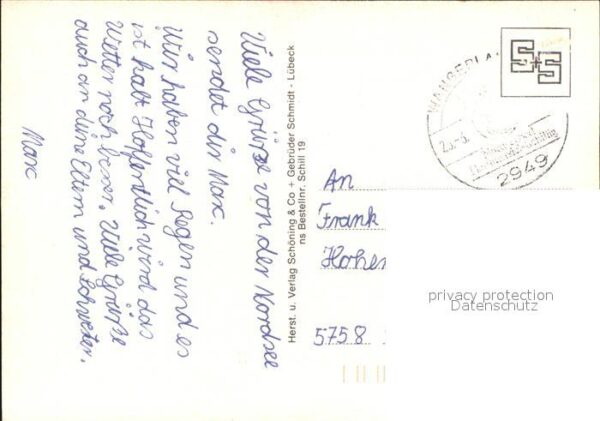 Viele Grüße von der Nordsee
sendet dir Marc.
Wir haben viel Regen und es
ist kalt Hoffentlich wird das
Wetter noch besser. Viele Grüße
auch an deine Eltern und Schwester.
Marc
Herst. u. Verlag Schöning & Co + Gebrüder Schmidt - Lübeck
ns Bestellnr. Schill 19
S+S
2949
An
Frank
Hohen
5758
privacy protection
Datenschutz